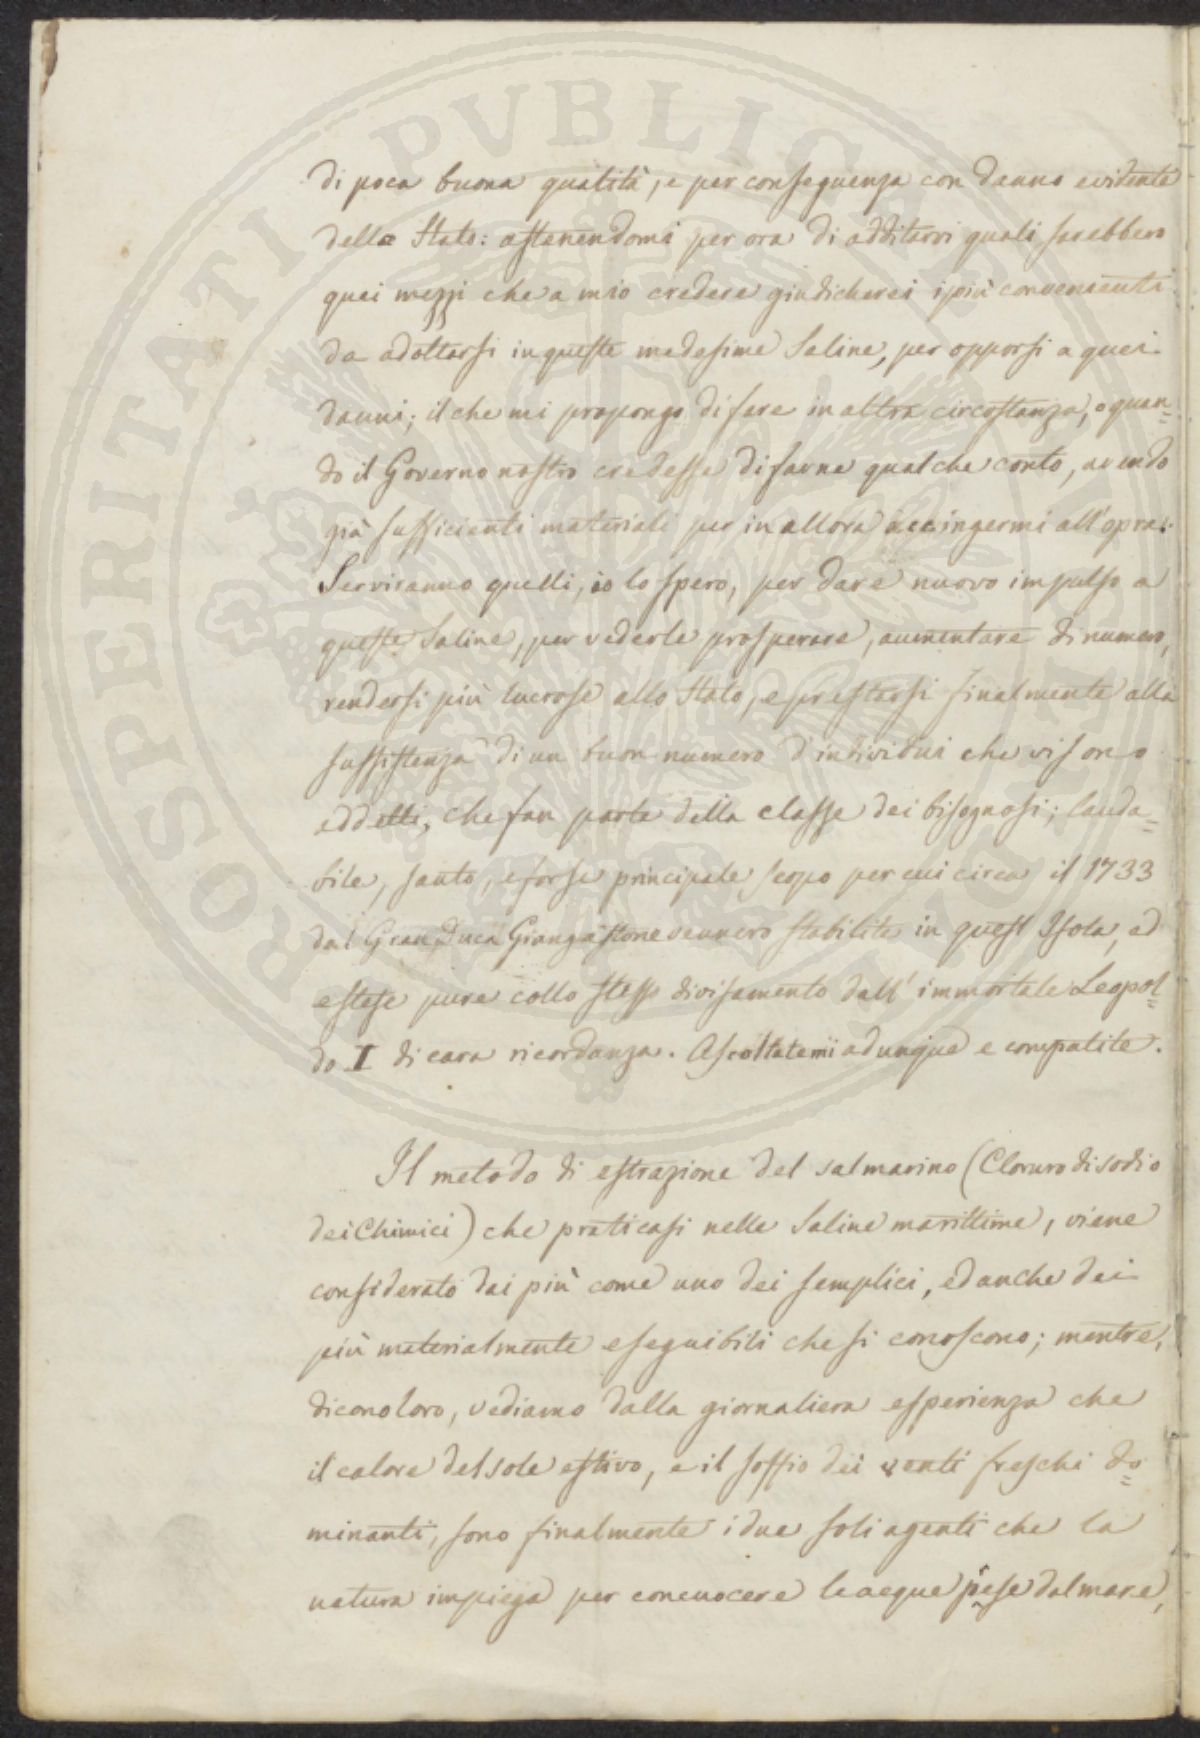 PROSPERITATI PVBLICAE AVGENDAE
di poca buona qualità, e per conseguenza con danno evidente
dello Stato: astenendomi per ora di additarvi quali sarebbero
quei mezzi che a mio credere giudicherei i più convenienti
da adottarsi in queste medesime Saline, per opporsi a quei
danni; il che mi propongo di fare in altra circostanza, o quan=
do il Governo nostro credesse di farne qualche conto, avendo
già sufficienti materiali per in allora accingermi all'opra.
Serviranno quelli, io lo spero, per dare nuovo impulso a
queste Saline, per vederle prosperare, aumentare di numero,
rendersi più lucrose allo Stato, e prestarsi finalmente alla
sussistenza di un buon numero d'individui che vi sono
addetti, che fan parte della classe dei bisognosi; lauda=
bile, santo, e forse principale scopo per cui circa il 1733
dal Gran Duca Giangastone vennero stabilite in quest'Isola, ed
estese pure collo stesso divisamento dall'immortale Leopol=
do I di cara ricordanza. Ascoltatemi adunque e compatite.
Il metodo di estrazione del sal marino (Cloruro di sodio
dei Chimici) che praticasi nelle Saline marittime, viene
considerato dai più come uno dei semplici, ed anche dei
più materialmente eseguibili che si conoscono; mentre,
dicono loro, vediamo dalla giornaliera esperienza che
il calore del sole estivo, e il soffio dei venti freschi do=
minanti, sono finalmente i due soli agenti che la
natura impiega per concuocere le acque prese dal mare,